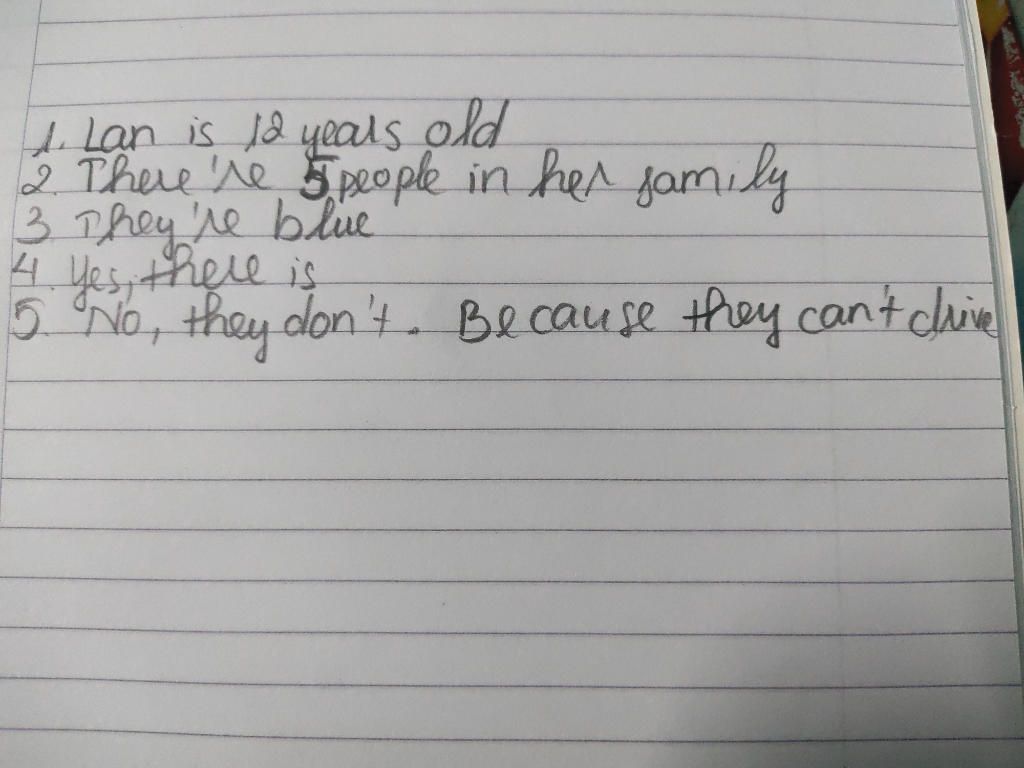 1. Lan is 12 years old
2. There're 5 people in her family
3 They're blue
4. Yes, there is
5. No, they don't. Because they can't drive